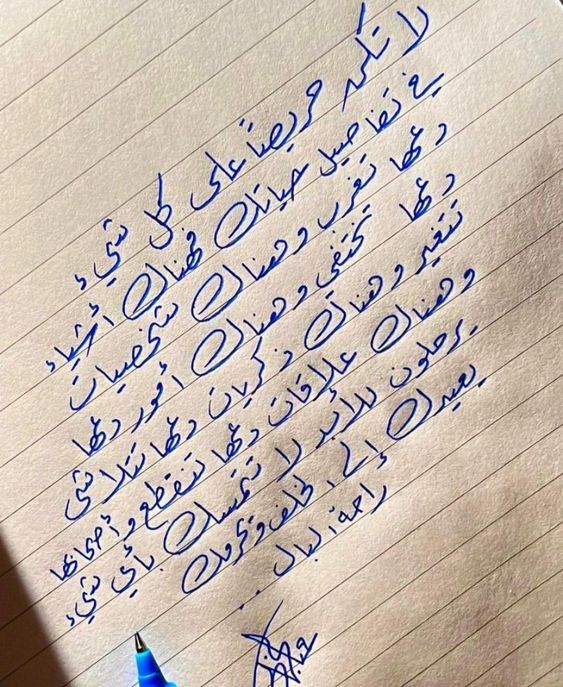 لا تكن حريصاً على كل شيء
في تفاصيل حياتك فهناك أشياء
دعها تغرب وهناك شخصيات
دعها تختفي وهناك أمور دعها
تتغير وهناك ذكريات دعها تتلاشى
وهناك علاقات دعها تنقطع و
يرحلون للأبد لا تتمسك بأي شيء
يعيدك إلى الخلف وتحرمك
راحة البال ...